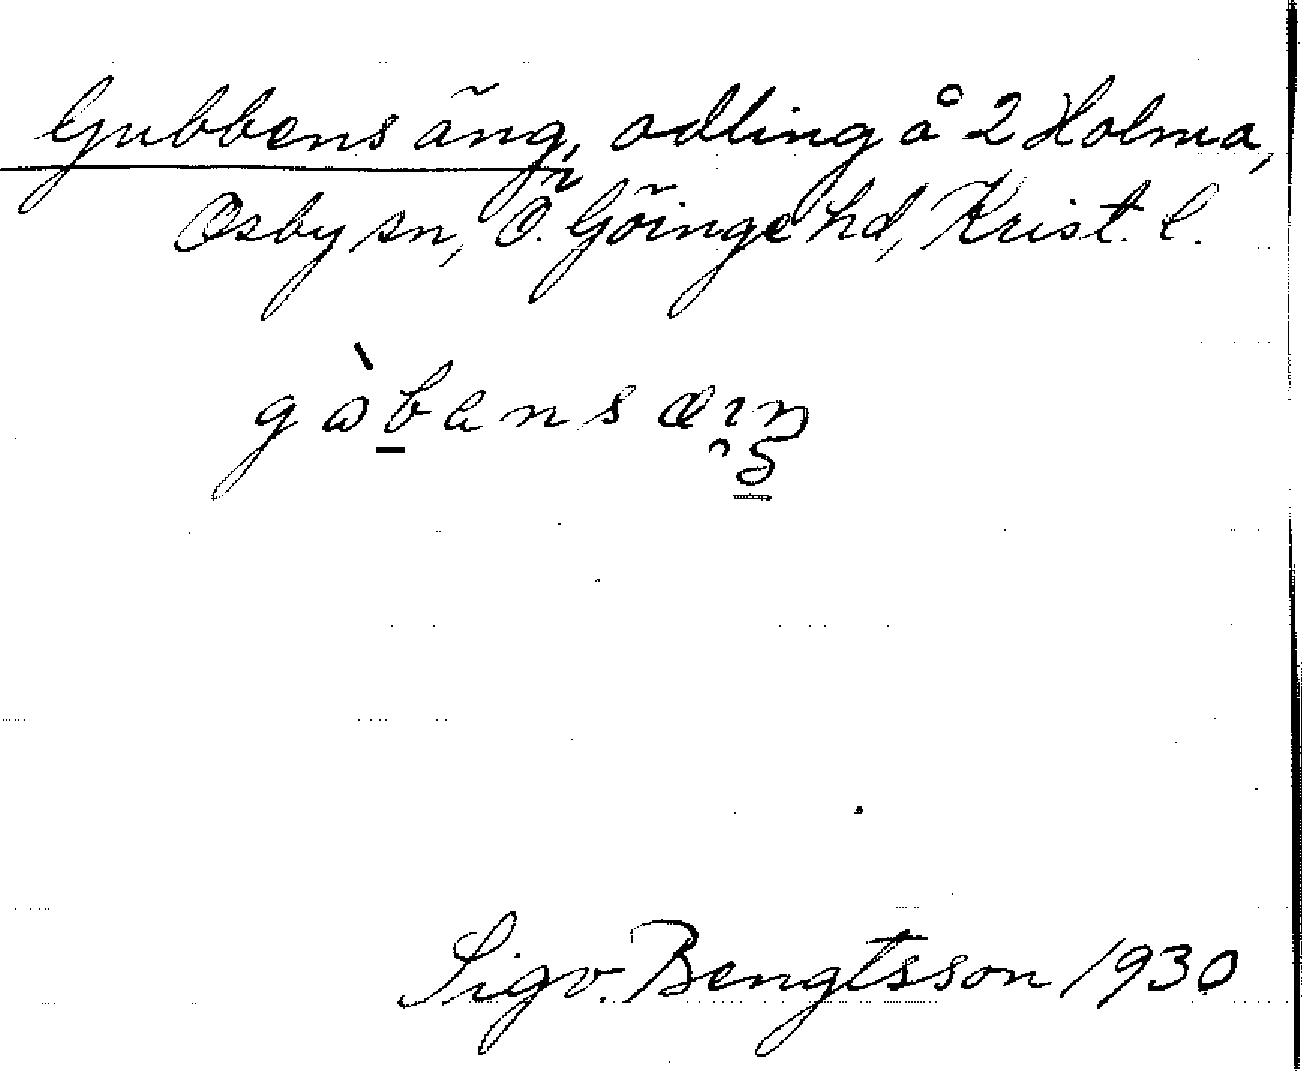 Gubbens äng, odling å 2 Holma,
Osby sn, Ö. Göinge hd, Krist. l.
Sigv. Bengtsson 1930